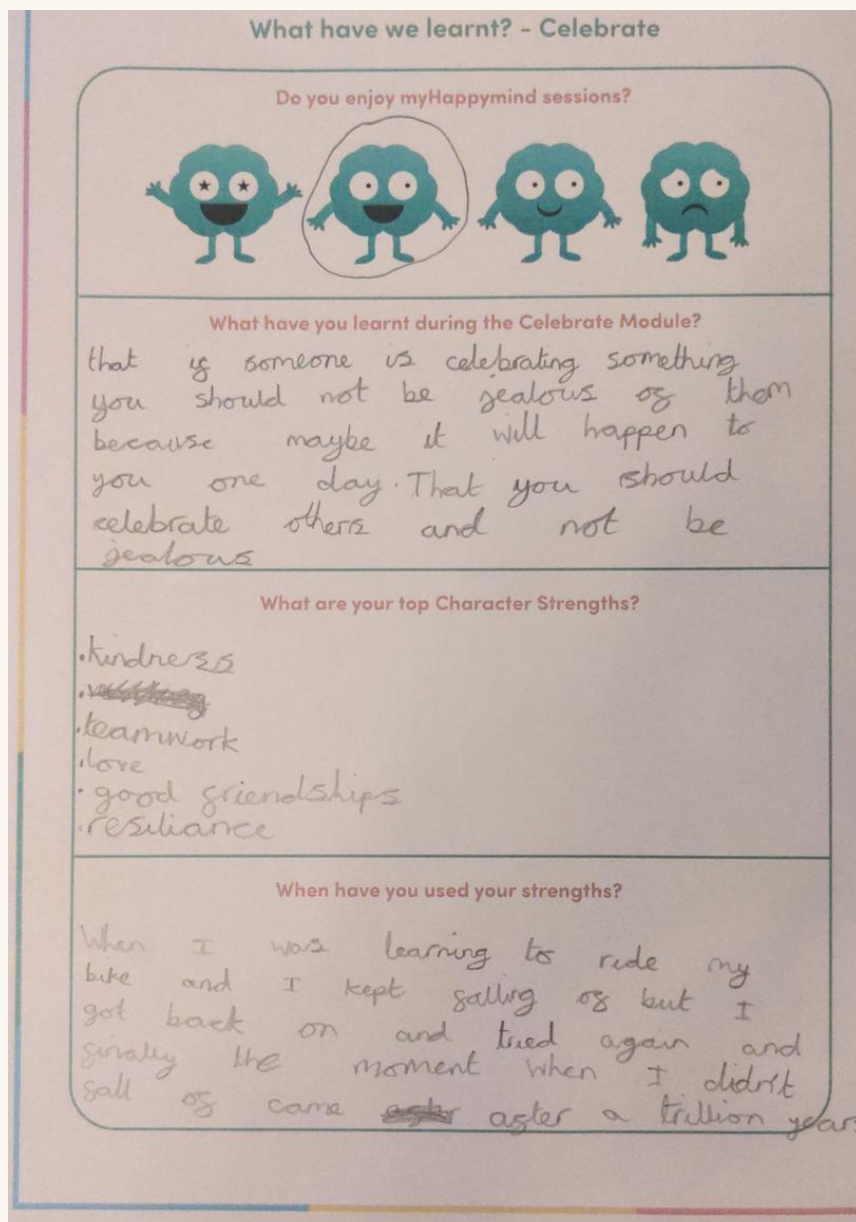 What have we learnt? - Celebrate
Do you enjoy myHappymind sessions?
What have you learnt during the Celebrate Module?
that if someone is celebrating something
you should not be jealous of them
because maybe it will happen to
you one day. That you should
celebrate others and not be
jealous
What are your top Character Strengths?
•kindness
•teamwork
•love
•good friendships
•resiliance
When have you used your strengths?
When I was learning to ride my
bike and I kept falling of but I
got back on and tried again and
finally the moment when I didn't
fall of came after a trillion years